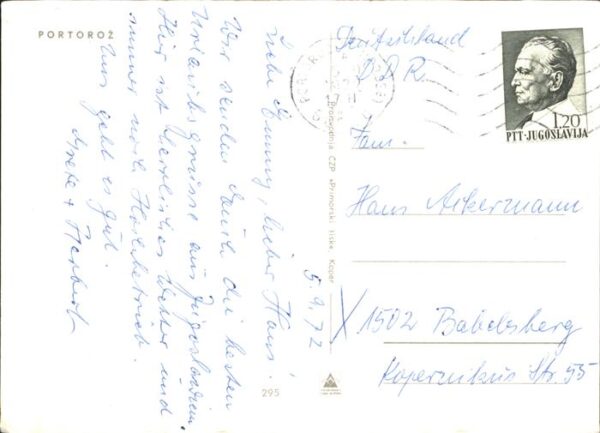 PORTOROŽ
5.9.72
Liebe Emmy, lieber Hans!
Wir senden Euch die besten
Urlaubsgrüsse aus Jugoslawien.
Hier ist herrliches Wetter und
immer noch Hochbetrieb.
Uns geht es gut.
Grete + Herbert
295
Proizvodnja ČZP »Primorski tisk« Koper
Deutschland
DDR
PTT-JUGOSLAVIJA
1.20
Fam.
Hans Ackermann
1502 Babelsberg
Kopernikus Str. 55